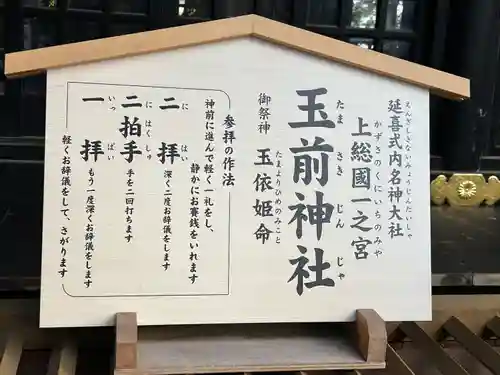 延喜式内名神大社
えんぎしきないみょうじんたいしゃ
上総國一之宮
かずさのくにいちのみや
玉前神社
たまさきじんじゃ
御祭神
玉依姫命
たまよりひめのみこと
参拝の作法
神前に進んで軽く一礼をし、
静かにお賽銭をいれます
二拝
にはい
深く二度お辞儀をします
二拍手
にはくしゅ
手を二回打ちます
一拝
いっぱい
もう一度深くお辞儀をします
軽くお辞儀をして、さがります